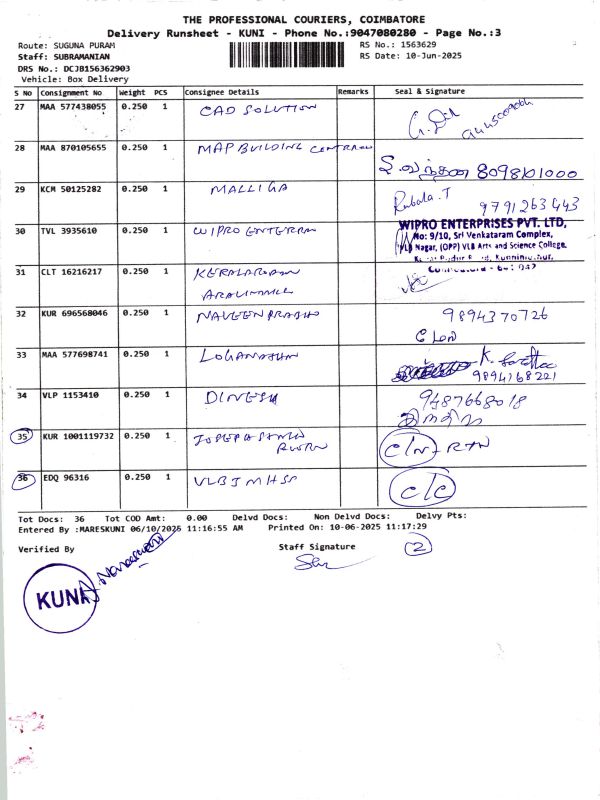 THE PROFESSIONAL COURIERS, COIMBATORE
Delivery Runsheet - KUNI - Phone No.:9047080280 - Page No.:3
Route: SUGUNA PURAM RS No.: 1563629
Staff: SUBRAMANIAN RS Date: 10-Jun-2025
DRS No.: DCJB156362903
Vehicle: Box Delivery
S No Consignment No Weight PCS Consignee Details Remarks Seal & Signature
27 MAA 577438055 0.250 1 CAD SOLUTION
28 MAA 870105655 0.250 1 MAP BUILDING
29 KCM 50125282 0.250 1 MALLIGA Rubala.T
9791263443
30 TVL 3935610 0.250 1 WIPRO WIPRO ENTERPRISES PVT. LTD,
No: 9/10, Sri Venkataram Complex,
VLB Nagar, (OPP) VLB Arts and Science College,
31 CLT 16216217 0.250 1
32 KUR 696568046 0.250 1 NAVEEN 9894370726
33 MAA 577698741 0.250 1 LOGANATHAN K.
9894168221
34 VLP 1153410 0.250 1 DINESH 9487668018
35 KUR 1001119732 0.250 1 JOSEPH
36 EDQ 96316 0.250 1 VLBJMHSS C/C
Tot Docs: 36 Tot COD Amt: 0.00 Delvd Docs: Non Delvd Docs: Delvy Pts:
Entered By :MARESKUNI 06/10/2025 11:16:55 AM Printed On: 10-06-2025 11:17:29
Verified By Staff Signature 2
KUNI